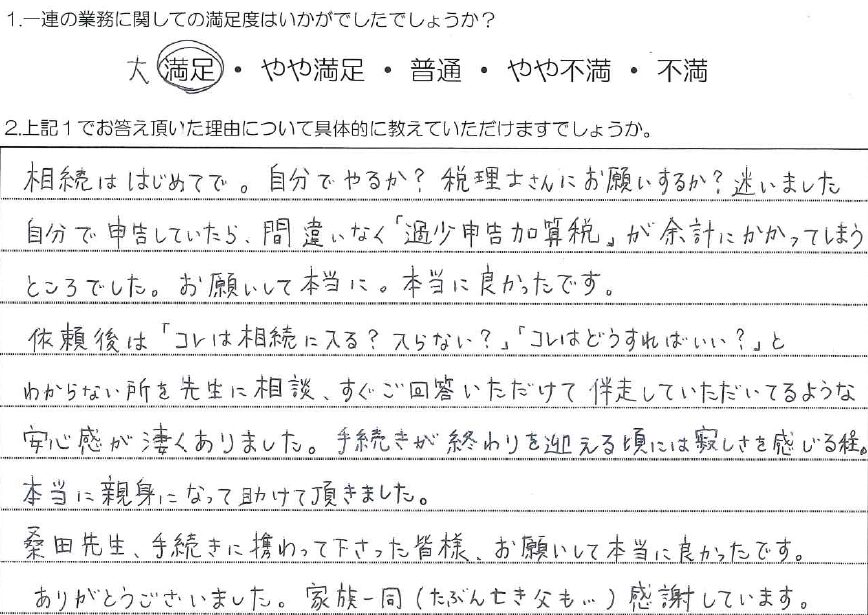 1.一連の業務に関しての満足度はいかがでしたでしょうか?
大 満足 ・ やや満足 ・ 普通 ・ やや不満 ・ 不満
2.上記1でお答え頂いた理由について具体的に教えていただけますでしょうか。
相続は はじめてで。自分でやるか? 税理士さんにお願いするか? 迷いました
自分で申告していたら、間違いなく「過少申告加算税」が余計にかかってしまう
ところでした。お願いして本当に。本当に良かったです。
依頼後は「コレは相続に入る? 入らない?」「コレはどうすればいい?」と
わからない所を先生に相談、すぐご回答いただけて伴走していただいてるような
安心感が凄くありました。手続きが終わりを迎える頃には寂しさを感じる程。
本当に親身になって助けて頂きました。
桑田先生、手続きに携わって下さった皆様、お願いして本当に良かったです。
ありがとうございました。家族一同(たぶん亡き父も…)感謝しています。